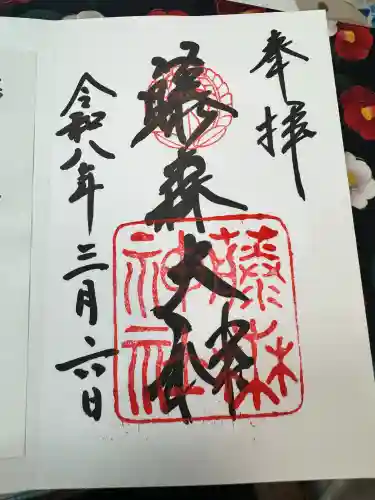 奉拝
藤森大神
令和八年三月六日
藤森
神社